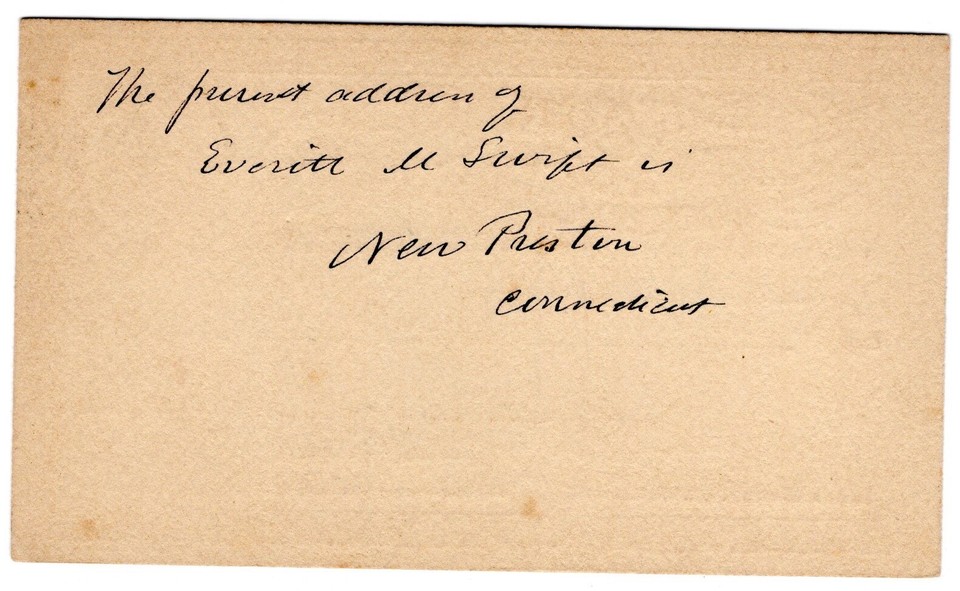 The present address of
Everitt M Swift is
New Preston
Connecticut